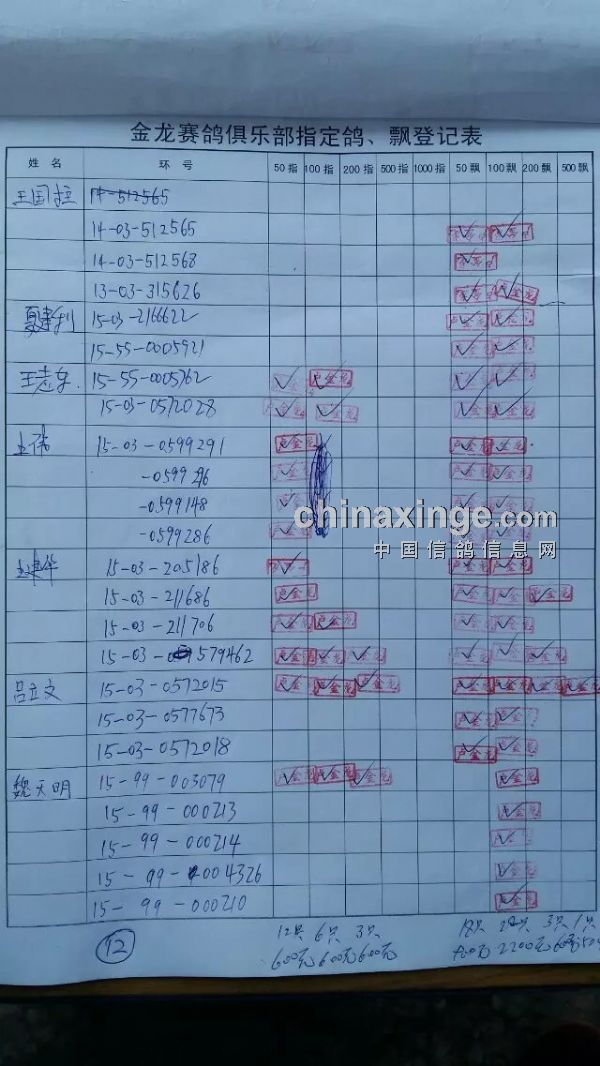 金龙赛鸽俱乐部指定鸽、飘登记表
姓 名 环 号 50指 100指 200指 500指 1000指 50飘 100飘 200飘 500飘
王国 14-512565
14-03-512565
14-03-512568
13-03-315626
夏建利 15-03-2166622
15-55-0005921
王志东 15-55-0005762
15-03-0572028
15-03-0599291
-0599296
-0599148
-0599286
15-03-205186
15-03-211686
15-03-211706
15-03-579462
吕立文 15-03-0572015
15-03-0577673
15-03-0572018
魏天明 15-99-003079
15-99-000213
15-99-000214
15-99-0004326
15-99-000210
12只 6只 3只 3只 1只
92 600元 600元 600元 2200元
chinaxinge.com
中国信鸽信息网